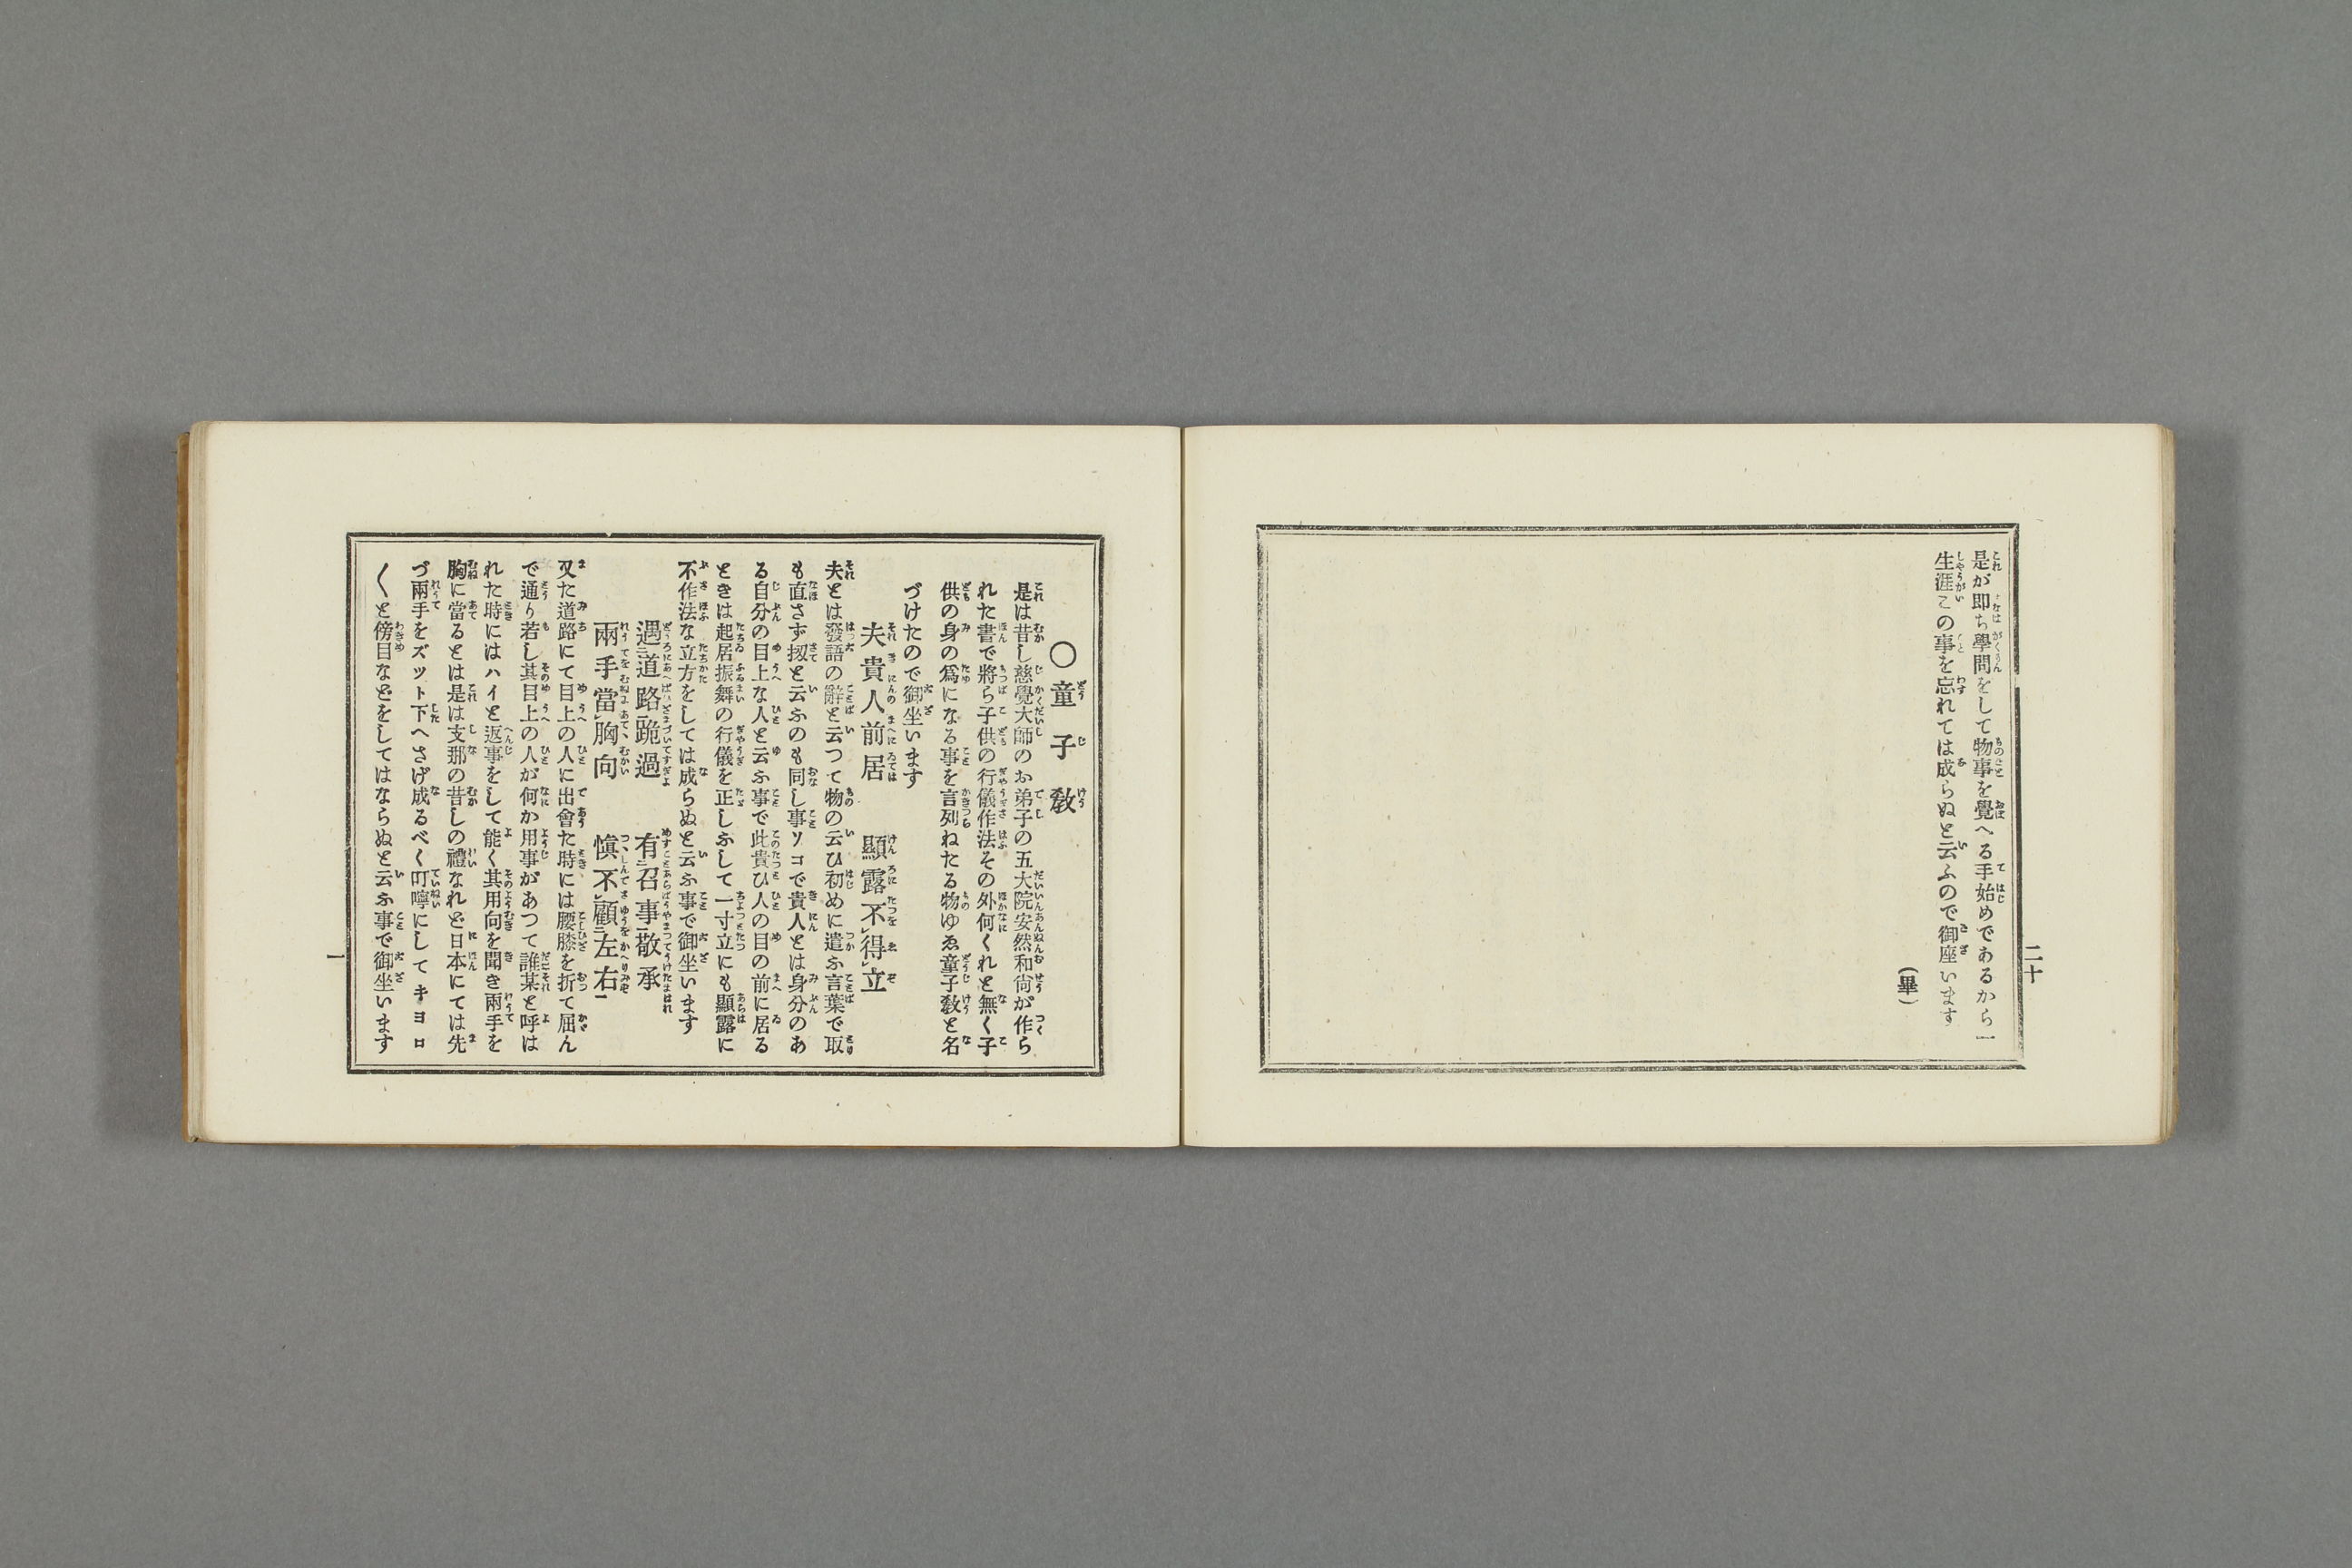 是が即ち學問をして物事を覺へる手始めであるから一
生涯この事を忘れては成らぬと云ふので御座います
(畢)
二十
〇童子敎
是は昔し慈覺大師のお弟子の五大院安然和尙が作ら
れた書で將ら子供の行儀作法その外何くれと無く子
供の身の爲になる事を言列ねたる物ゆゑ童子敎と名
づけたので御坐います
夫貴人前居 顯露不得立
夫とは發語の辭と云つて物の云ひ初めに遣ふ言葉で取
も直さず扨と云ふのも同し事ソコで貴人とは身分のあ
る自分の目上な人と云ふ事で此貴ひ人の目の前に居る
ときは起居振舞の行儀を正しふして一寸立にも顯露に
不作法な立方をしては成らぬと云ふ事で御坐います
遇道路跪過 有召事敬承
兩手當胸向 愼不顧左右
又た道路にて目上の人に出會た時には腰膝を折て屈ん
で通り若し其目上の人が何か用事があつて誰某と呼は
れた時にはハイと返事をして能く其用向を聞き兩手を
胸に當るとは是は支那の昔しの禮なれど日本にては先
づ兩手をズット下へさげ成るべく叮嚀にしてキヨロ
〱と傍目などをしてはならぬと云ふ事で御坐います
一